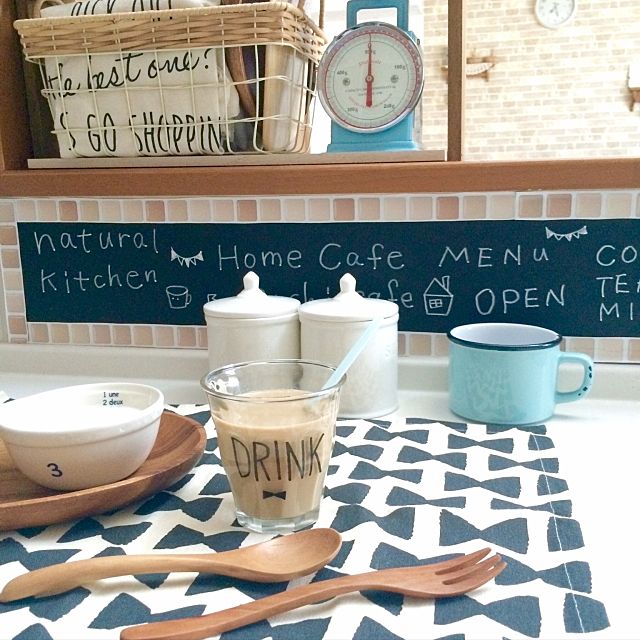 PICK OUT
the best one?
GO SHOPPIN
natural
kitchen
Home Cafe
MENU
OPEN
CO
TEA
MI
1 une
2 deux
3
DRINK